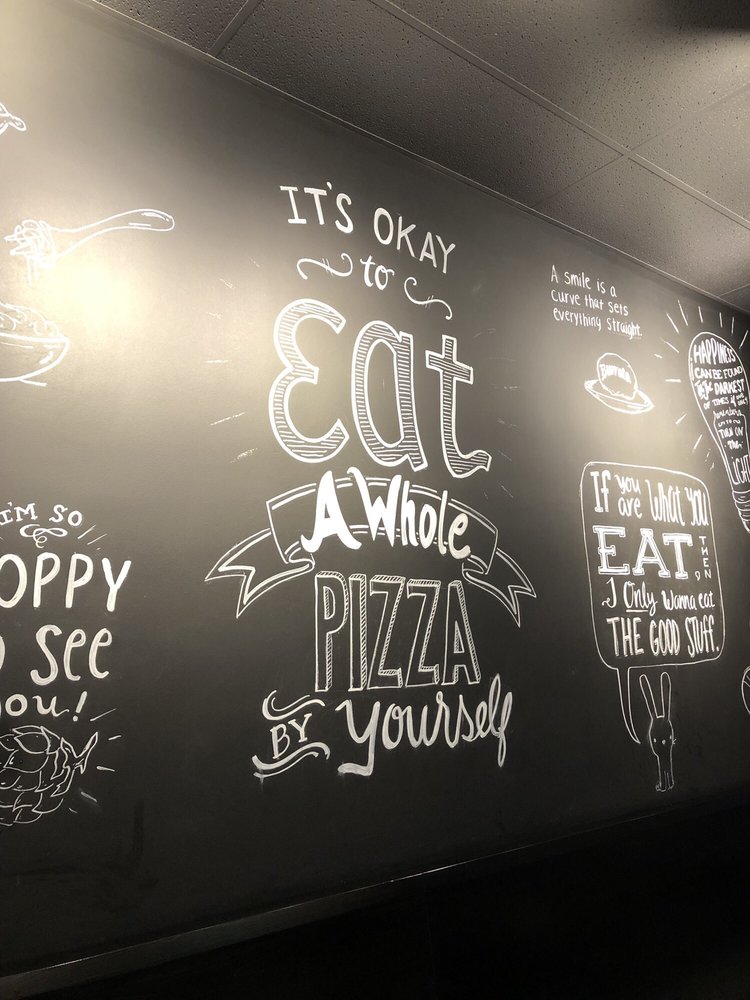 I'M SO
OPPY
O SEE
ou!
IT'S OKAY
to
Eat
A Whole
PIZZA
BY Yourself
A smile is a
curve that sets
everything straight.
Burrata
If you are What You
EAT THEN,
I Only Wanna eat
THE GOOD STUFF.
HAPPINESS
CAN BE FOUND
DARKEST
OF TIMES if
TURN ON
LIGHT